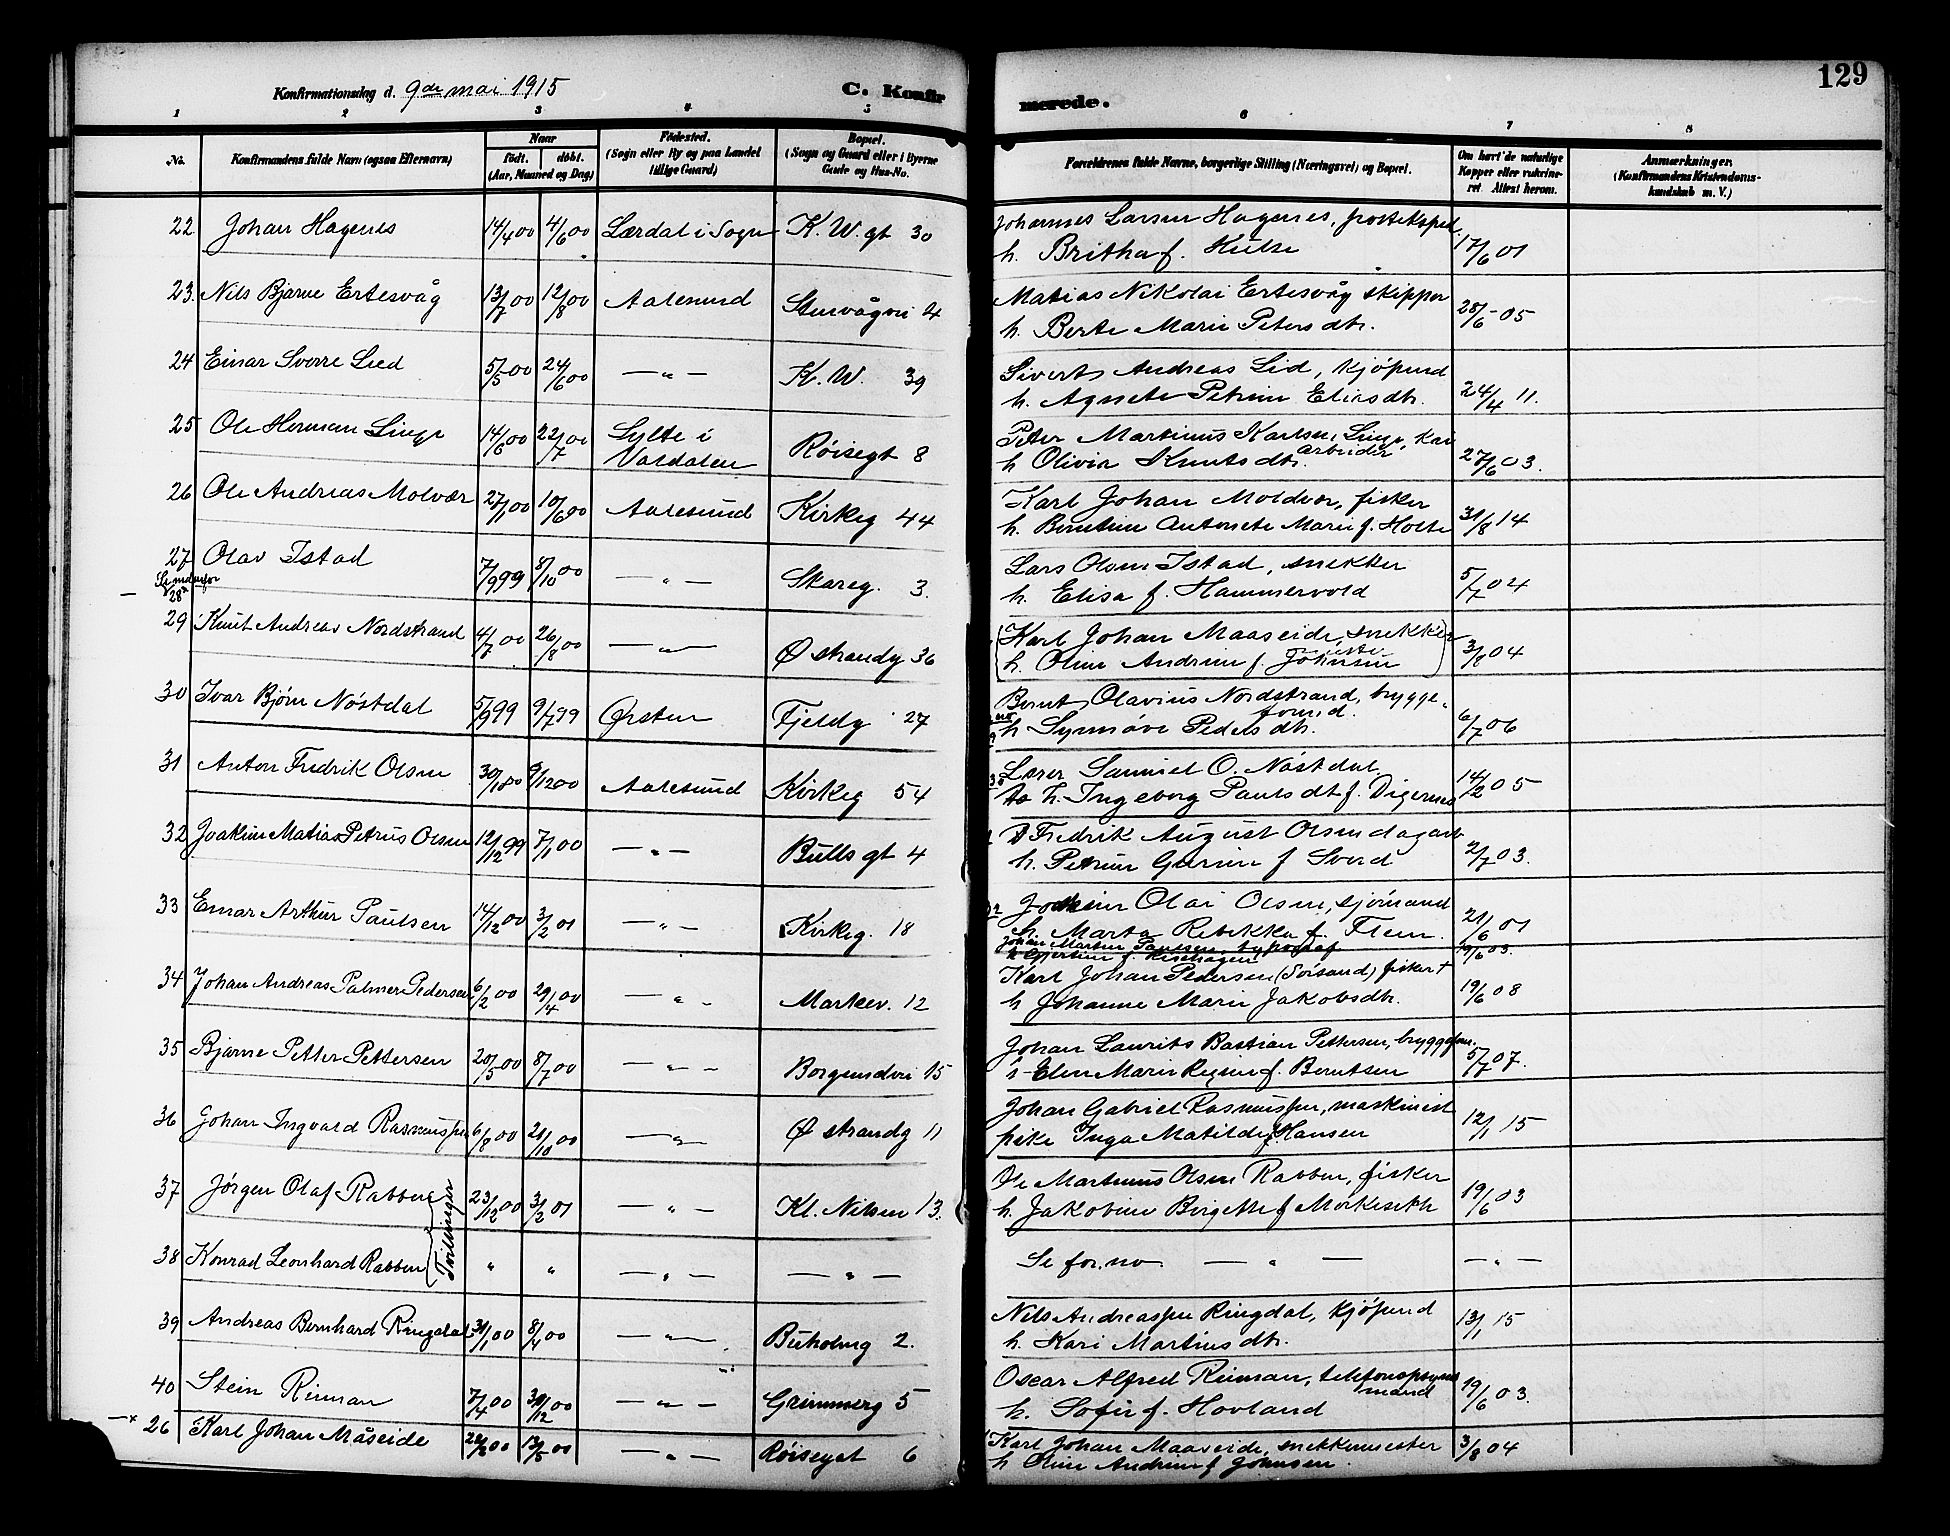 129
Konfirmationsdag d. 9de mai 1915
C. Konfir
merede.
1 2 3 4 5 6 7 8
No. Konfirmandens fulde Navn (ogsaa Efternavn) Naar født. døbt. (Aar, Maaned og Dag) Fødested. (Sogn eller By og paa Landet tillige Gaard) Bopæl. (Sogn og Gaard eller i Byerne Gade og Hus-No. Forældrenes fulde Navne, borgerlige Stilling (Næringsvei) og Bopæl. Om havt de naturlige Kopper eller vakcineret. Attest herom. Anmærkninger. (Konfirmandens Kristendomskundskab m. V.)
22 Johan Hagenes 14/4 00 4/6 00 Lærdal i Sogn K. W. gt 30 Johannes Larsen Hagenes, posteksped.
h. Britha f. 17/6 01
23. Nils Bjarne Ertesvåg 13/7 00 12/8 00 Aalesund Storvågvei 4 Matias Nikolai Ertesvåg skipper
h. Berte Marie Petersdtr. 28/6 05
24 Einar Sverre Lied 5/5 00 24/6 00 — „ — K. W. 39 Siverts Andreas Lid, kjøpmd
h. Agnete Petrine Eliasdtr. 24/4 11.
25 Ole Herman Linge 14/6 00 22/7 00 Sylte i Valdalen Røisegt 8 Peter Martinus Karlsen Linge, kai
arbeider
h Olivia Knutsdtr. 27/6 03.
26 Ole Andreas Molvær 27/1 00 10/6 00 Aalesund Kirkeg 44 Karl Johan Moldvær, fisker
h. Berntine Antonete Marie f. Holte 31/8 14
27 Olav Istad 7/9 99 8/10 00 — „ — Skareg. 3. Lars Olsen Istad, snekker
h. Elisa f. Hammervold 5/7 04
28
29 Knut Andreas Nordstrand 4/7 00 26/8 00 — „ — Ø strandg 36 Karl Johan Maaseide, snekker
h. Oline Andrine f. Johnsen 3/8 04
30 Ivar Bjørn Nøstdal 5/9 99 9/7 99 Ørsten Fjeldg 27 Bernt Olavius Nordstrand, brygge-
formd.
h Synnøve Pedersdtr. 6/7 06
31 Anton Fredrik Olsen 30/1 00 9/12 00 Aalesund Kirkeg 54 Lærer Samuel O. Nøstdal
h. Ingeborg Paulsdtr f. Digernes 14/2 05
32 Joakim Matias Petrus Olsen 12/12 99 7/1 00 — „ — Bulls gt 4 Fredrik August Olsen dagarb
h. Petrine Gurine f Sverd 2/7 03.
33 Einar Arthur Paulsen 14/12 00 3/2 01 — „ — Kirkeg. 18 Joakim Olai Olsen, sjømand
h. Marta Rebekka f. Flem. 21/6 01
Johan Martin Paulsen, typograf 19/6 03.
34 Johan Andreas Palmer Pedersen 6/2 00 29/4 00 — „ — Markev. 12 Karl Johan Pedersen (Sørsand) fisker +
h Johanne Marie Jakobsdtr. 19/6 08
35 Bjarne Petter Pettersen 20/5 00 8/7 00 — „ — Borgundvei 15 Johan Laurits Bastian Pettersen, bryggefm.
Elen Marie Regine f. Berntsen 5/7 07.
36 Johan Ingvard Rasmussen 6/8 00 21/10 00 — „ — Ø strandg 11 Johan Gabriel Rasmussen, maskinist
pike Inga Matilde Hansen 12/1 15
37 Jørgen Olaf Rabben 23/12 00 3/2 01 — „ — Kl. Nilsen 13. Ole Martinus Olsen Rabben, fisker
h. Jakobine Birgette f Morkeseth 19/6 03
Tvillinger
38 Konrad Leonhard Rabben „ „ — „ — — „ — Se for. no. — „ — — „ —
39 Andreas Bernhard Ringdal 31/1 00 8/4 00 — „ — Buholmg 2. Nils Andreassen Ringdal, kjøpmd
h. Kari Martinusdtr. 13/1 15
40 Stein Rieman 7/4 00 30/12 00 — „ — Grimmerg 5 Oscar Alfred Rieman, telefonopsyns
mand
h. Sofie f. Hovland 19/6 03.
26 Karl Johan Måseide 22/3 00 13/5 00 — „ — Røisegat 6 Karl Johan Maaseide, snekkermester
h Oline Andrine f Johnsen. 3/8 04